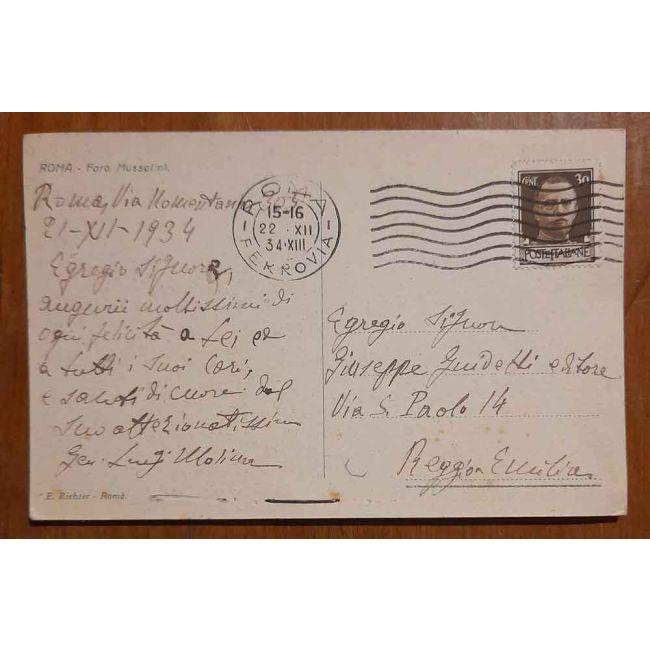 ROMA - Foro Mussolini.
Roma, Via Nomentana
21-XII-1934
Egregio Signore,
auguri moltissimi di
ogni felicità a Lei ed
a tutti i Suoi Cari,
e saluti di cuore dal
Suo affezionatissimo
Gen. Luigi Molina
E. Richter - Roma.
ROMA
15-16
22 XII
34·XIII
FERROVIA
CENT. 30
POSTE ITALIANE
Egregio Signor
Giuseppe Guidetti editore
Via S. Paolo 14
Reggio Emilia